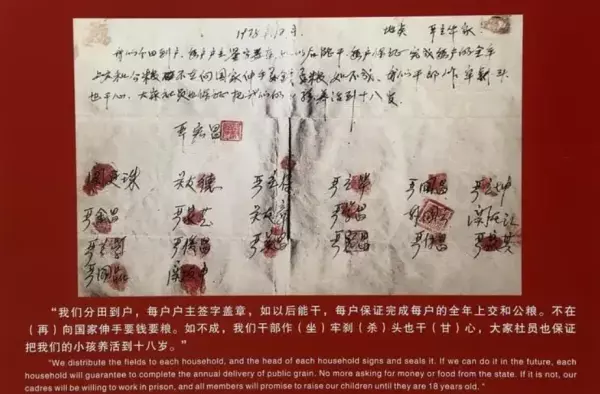 1978.12月 地点 严立华家
我们分田到户,每户户主签字盖章,如以后能干,每户保证完成每户的全年
上交和公粮,不在向国家伸手要钱要粮,如不成,我们干部作牢刹头
也干心,大家社员也保证把我们的小孩养活到十八岁。
严宏昌
关友德 严立符 严立华 严国昌 严立坤
严金昌 严家芝 关友章 严学昌 韩国云 关友江
严立学 严俊昌 严美昌 严付昌 严家其
严国品 关友申
“我们分田到户，每户户主签字盖章，如以后能干，每户保证完成每户的全年上交和公粮。不在
（再）向国家伸手要钱要粮。如不成，我们干部作（坐）牢刹（杀）头也干（甘）心，大家社员也保证
把我们的小孩养活到十八岁。”
"We distribute the fields to each household, and the head of each household signs and seals it. If we can do it in the future, each
household will guarantee to complete the annual delivery of public grain. No more asking for money or food from the state. If it is not, our
cadres will be willing to work in prison, and all members will promise to raise our children until they are 18 years old. "